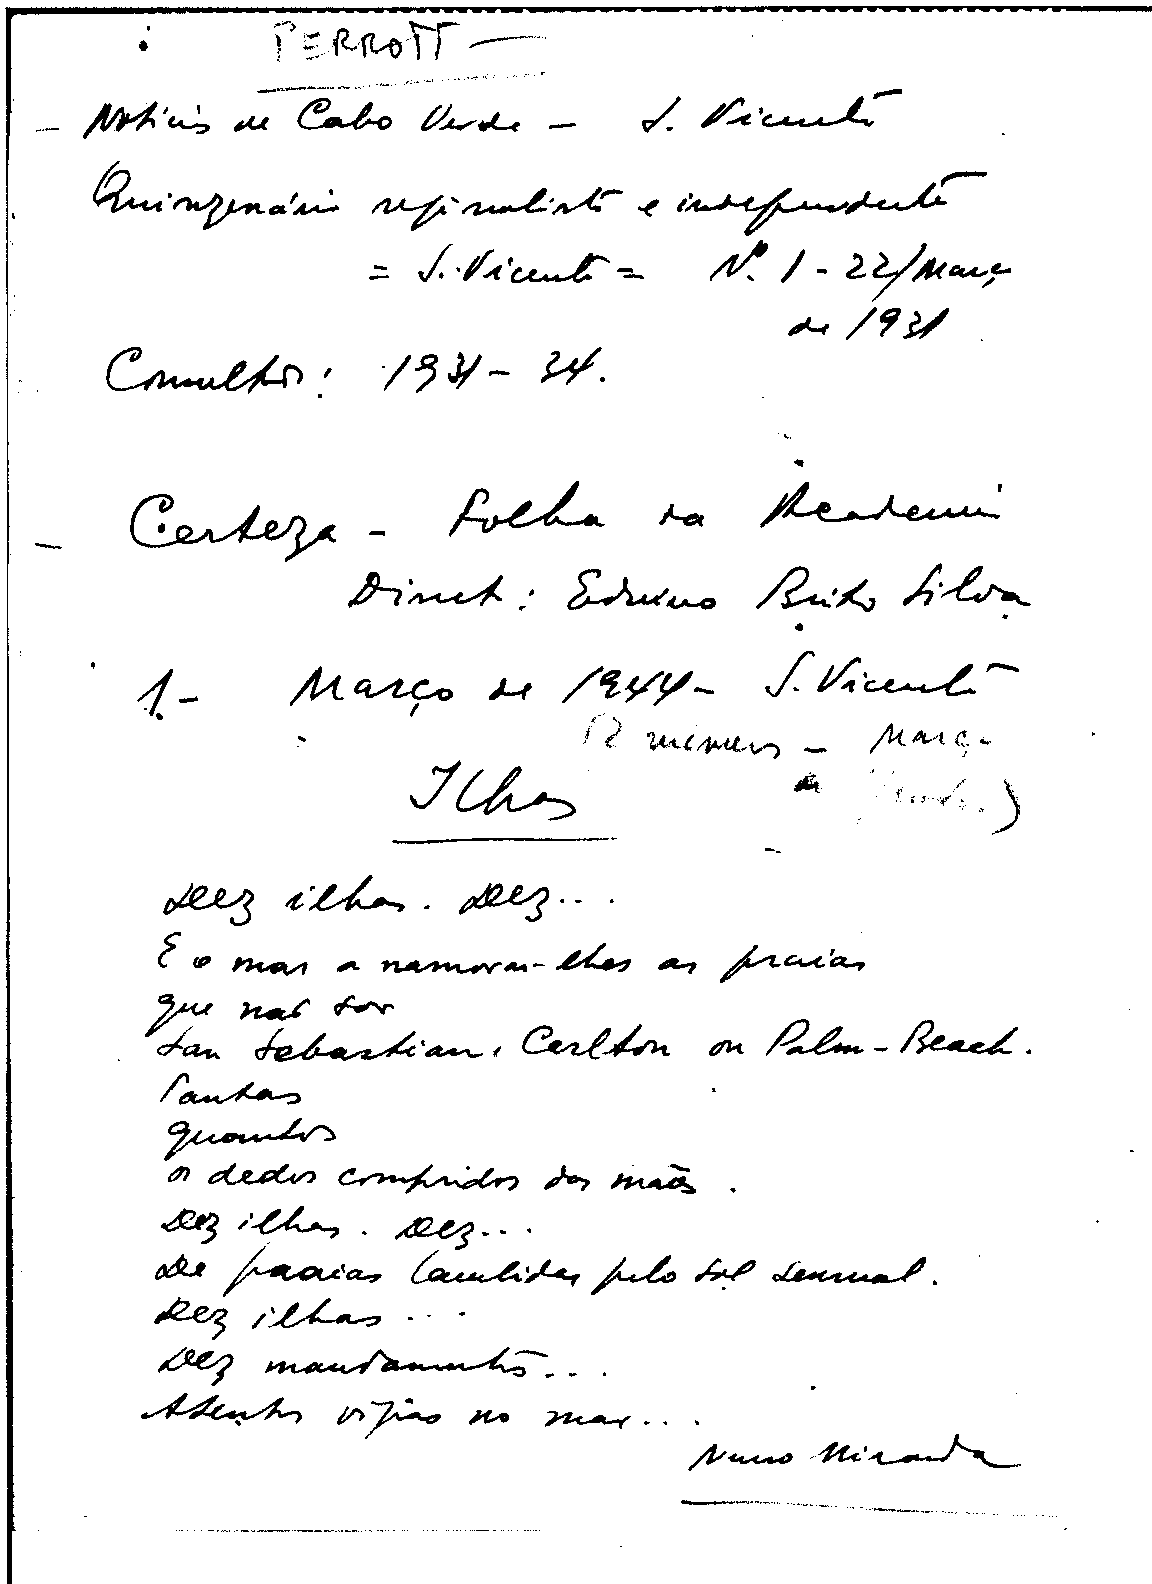 PERROTT —
– Notícias de Cabo Verde – S. Vicente
Quinzenário regionalista e independente
= S. Vicente = Nº. 1 - 22/Março
de 1931
Consultor: 1931 - 34.
– Certeza – Folha da Academia
Direct: Eduino Brito Silva
1. – Março de 1944 – S. Vicente
números – Março
de
Ilhas
Dez ilhas. Dez...
E o mar a namorar-lhes as praias
que não são
San Sebastian, Carlton ou Palm-Beach.
Tantas
quantos
os dedos compridos das mãos.
Dez ilhas. Dez...
De praias lambidas pelo sol sensual.
Dez ilhas...
Dez mandamentos...
Atentos vigias no mar...
Nuno Miranda